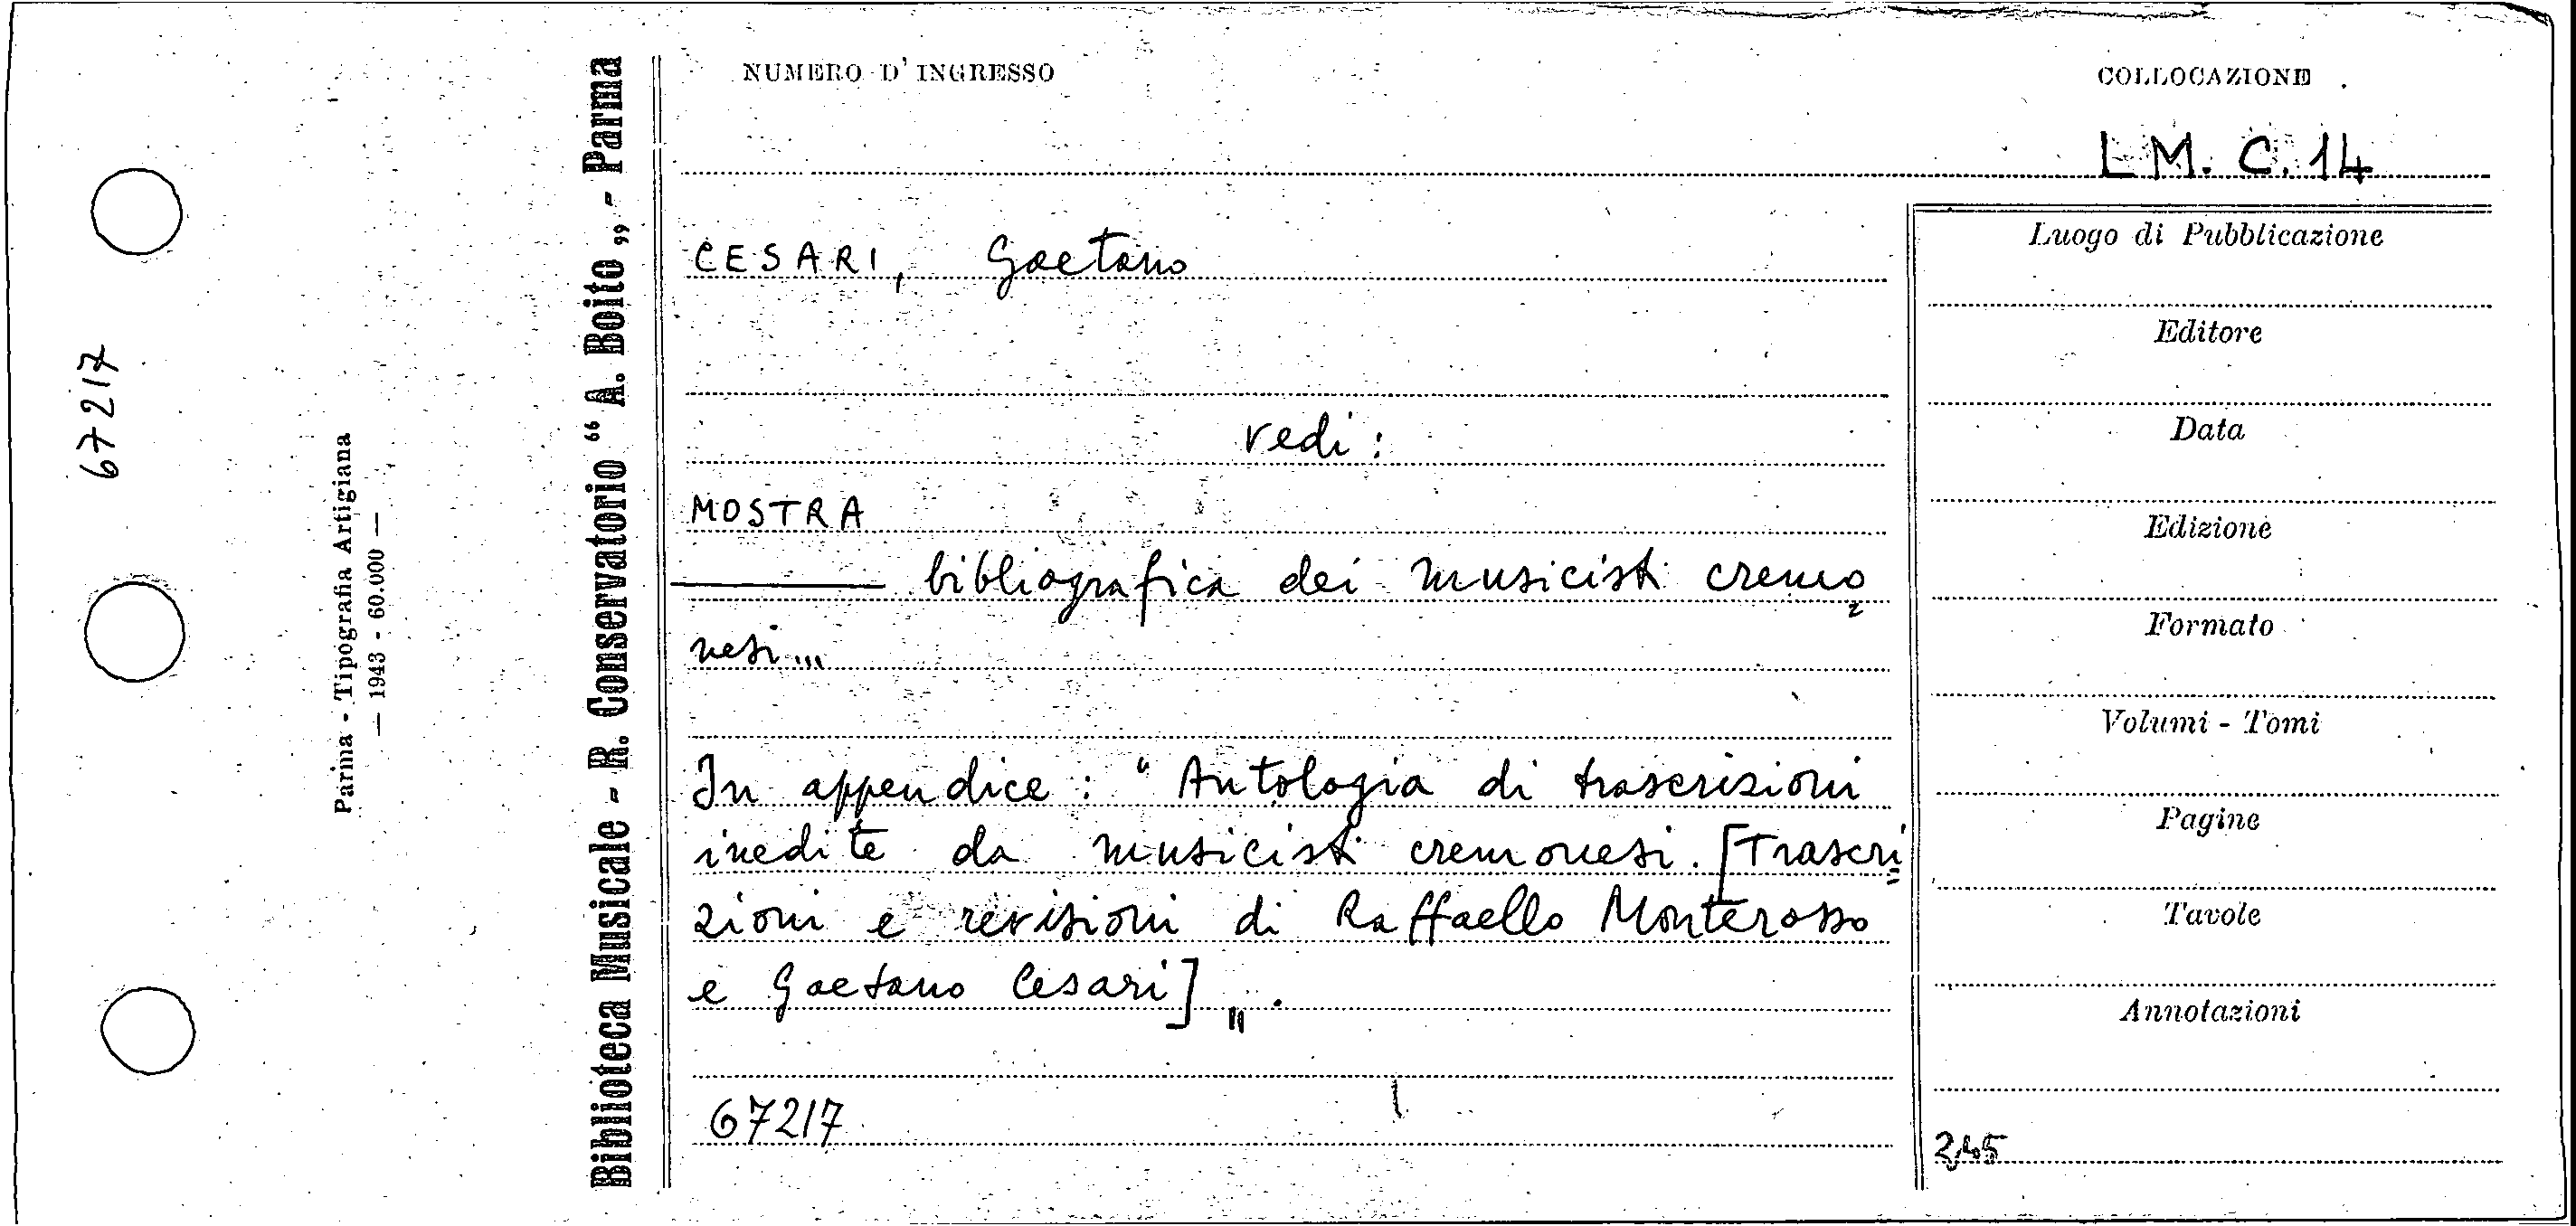 67217
Parma - Tipografia Artigiana
— 1943 - 60.000 —
Biblioteca Musicale - R. Conservatorio “ A. Boito „ - Parma
NUMERO D'INGRESSO
COLLOCAZIONE
LM. C. 14
CESARI, Gaetano
vedi :
MOSTRA
——— bibliografica dei musicisti cremo=
nesi...
In appendice : " Antologia di trascrizioni
inedite da musicisti cremonesi. [Trascri=
zioni e revisioni di Raffaello Monterosso
e Gaetano Cesari] „ .
67217
Luogo di Pubblicazione
Editore
Data
Edizione
Formato
Volumi - Tomi
Pagine
Tavole
Annotazioni
245